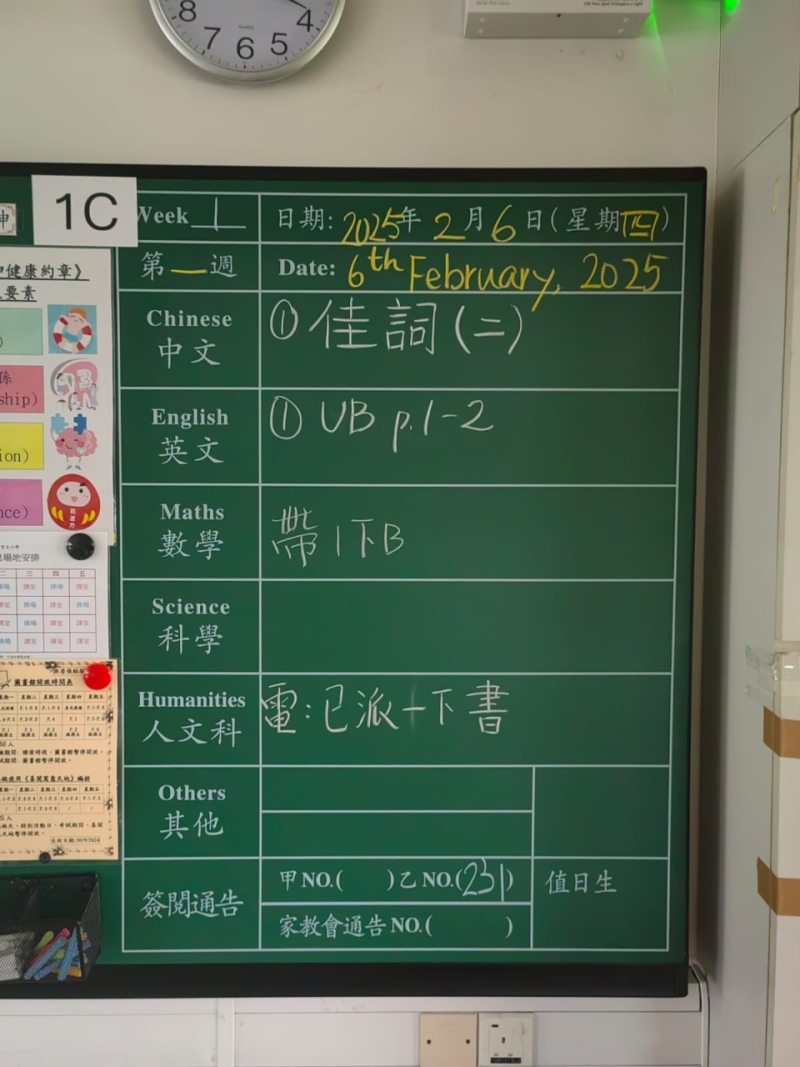 8
7
6
5
4
1C
Week 1
日期: 2025年 2月 6日(星期四)
第一週
Date: 6th February, 2025
Chinese
中文
① 佳詞(二)
English
英文
① UB p.1-2
Maths
數學
帶1下B
Science
科學
Humanities
人文科
電:已派一下書
Others
其他
簽閱通告
甲NO.( )乙NO.(231)
值日生
家教會通告NO.( )
健康約章》
要素
係
ship)
ion)
nce)
場地安排
圖書館開放時間表